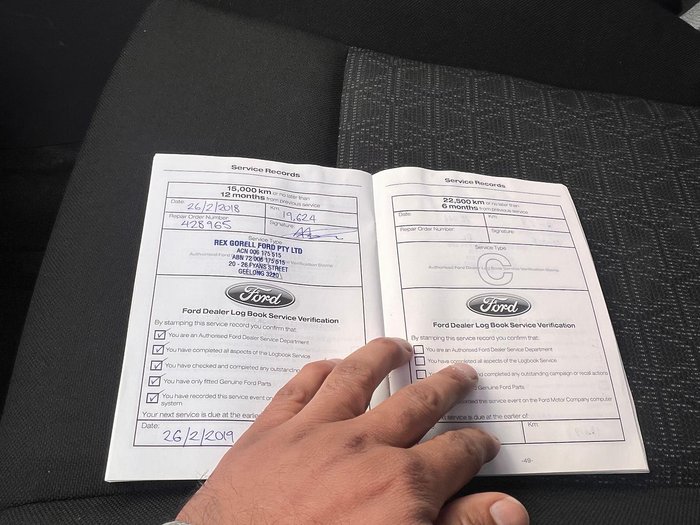 Service Records
15,000 km or no later than
12 months from previous service
Date: 26/2/2018
Km 19,624
Repair Order Number: 428965
Signature
Service Type
REX GORELL FORD PTY LTD
ACN 006 175 515
ABN 72 006 175 515
20 - 26 FYANS STREET
GEELONG 3220
Ford
Ford Dealer Log Book Service Verification
By stamping this service record you confirm that:
You are an Authorised Ford Dealer Service Department
You have completed all aspects of the Logbook Service
You have checked and completed any outstanding
You have only fitted Genuine Ford Parts
You have recorded this service event on
system.
Your next service is due at the earlier
Date:
26/2/2019
Service Records
22,500 km or no later than
6 months from previous service
Date
Km
Repair Order Number
Signature
Service Type
C
Authorised Ford Dealer Log Book Service Verification Stamp
Ford
Ford Dealer Log Book Service Verification
By stamping this service record you confirm that:
You are an Authorised Ford Dealer Service Department
You have completed all aspects of the Logbook Service
and completed any outstanding campaign or recall actions
Genuine Ford Parts
this service event on the Ford Motor Company computer
next service is due at the earlier of:
Km
-49-